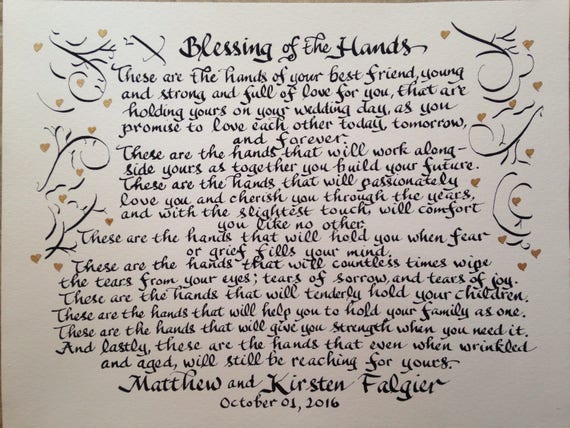 Blessing of the Hands
These are the hands of your best friend, young
and strong and full of love for you, that are
holding yours on your wedding day, as you
promise to love each other today, tomorrow,
and forever.
These are the hands that will work along-
side yours as together you build your future.
These are the hands that will passionately
love you and cherish you through the years,
and with the slightest touch, will comfort
you like no other.
These are the hands that will hold you when fear
or grief fills your mind.
These are the hands that will countless times wipe
the tears from your eyes; tears of sorrow, and tears of joy.
These are the hands that will tenderly hold your children.
These are the hands that will help you to hold your family as one.
These are the hands that will give you strength when you need it.
And lastly, these are the hands that even when wrinkled
and aged, will still be reaching for yours.
Matthew and Kirsten Falgier
October 01, 2016